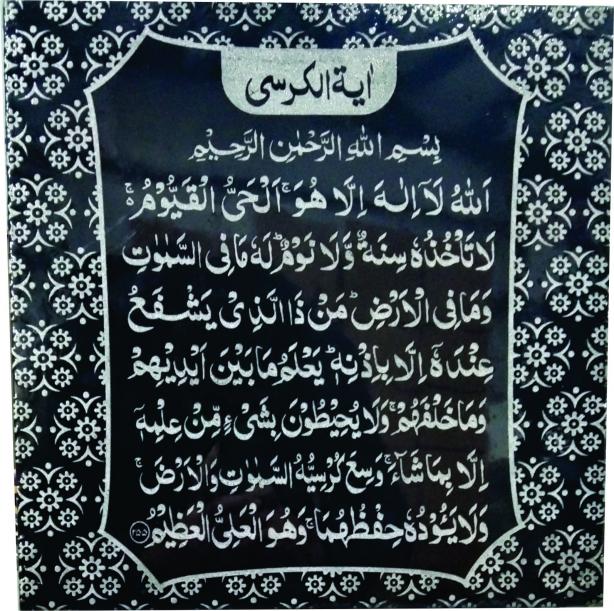 اٰية الكرسى
بِسْمِ اللهِ الرَّحْمٰنِ الرَّحِيْمِ
اَللهُ لَآ اِلٰهَ اِلَّا هُوَ ۚ اَلْحَىُّ الْقَيُّوْمُ ۚ
لَا تَاْخُذُهٗ سِنَةٌ وَّلَا نَوْمٌ ؕ لَهٗ مَا فِى السَّمٰوٰتِ
وَمَا فِى الْاَرْضِ ؕ مَنْ ذَا الَّذِىْ يَشْفَعُ
عِنْدَهٗٓ اِلَّا بِاِذْنِهٖ ؕ يَعْلَمُ مَا بَيْنَ اَيْدِيْهِمْ
وَمَا خَلْفَهُمْ ۚ وَلَا يُحِيْطُوْنَ بِشَىْءٍ مِّنْ عِلْمِهٖٓ
اِلَّا بِمَا شَآءَ ۚ وَسِعَ كُرْسِيُّهُ السَّمٰوٰتِ وَالْاَرْضَ ۚ
وَلَا يَـُٔوْدُهٗ حِفْظُهُمَا ۚ وَهُوَ الْعَلِىُّ الْعَظِيْمُ ۝۲۵۵